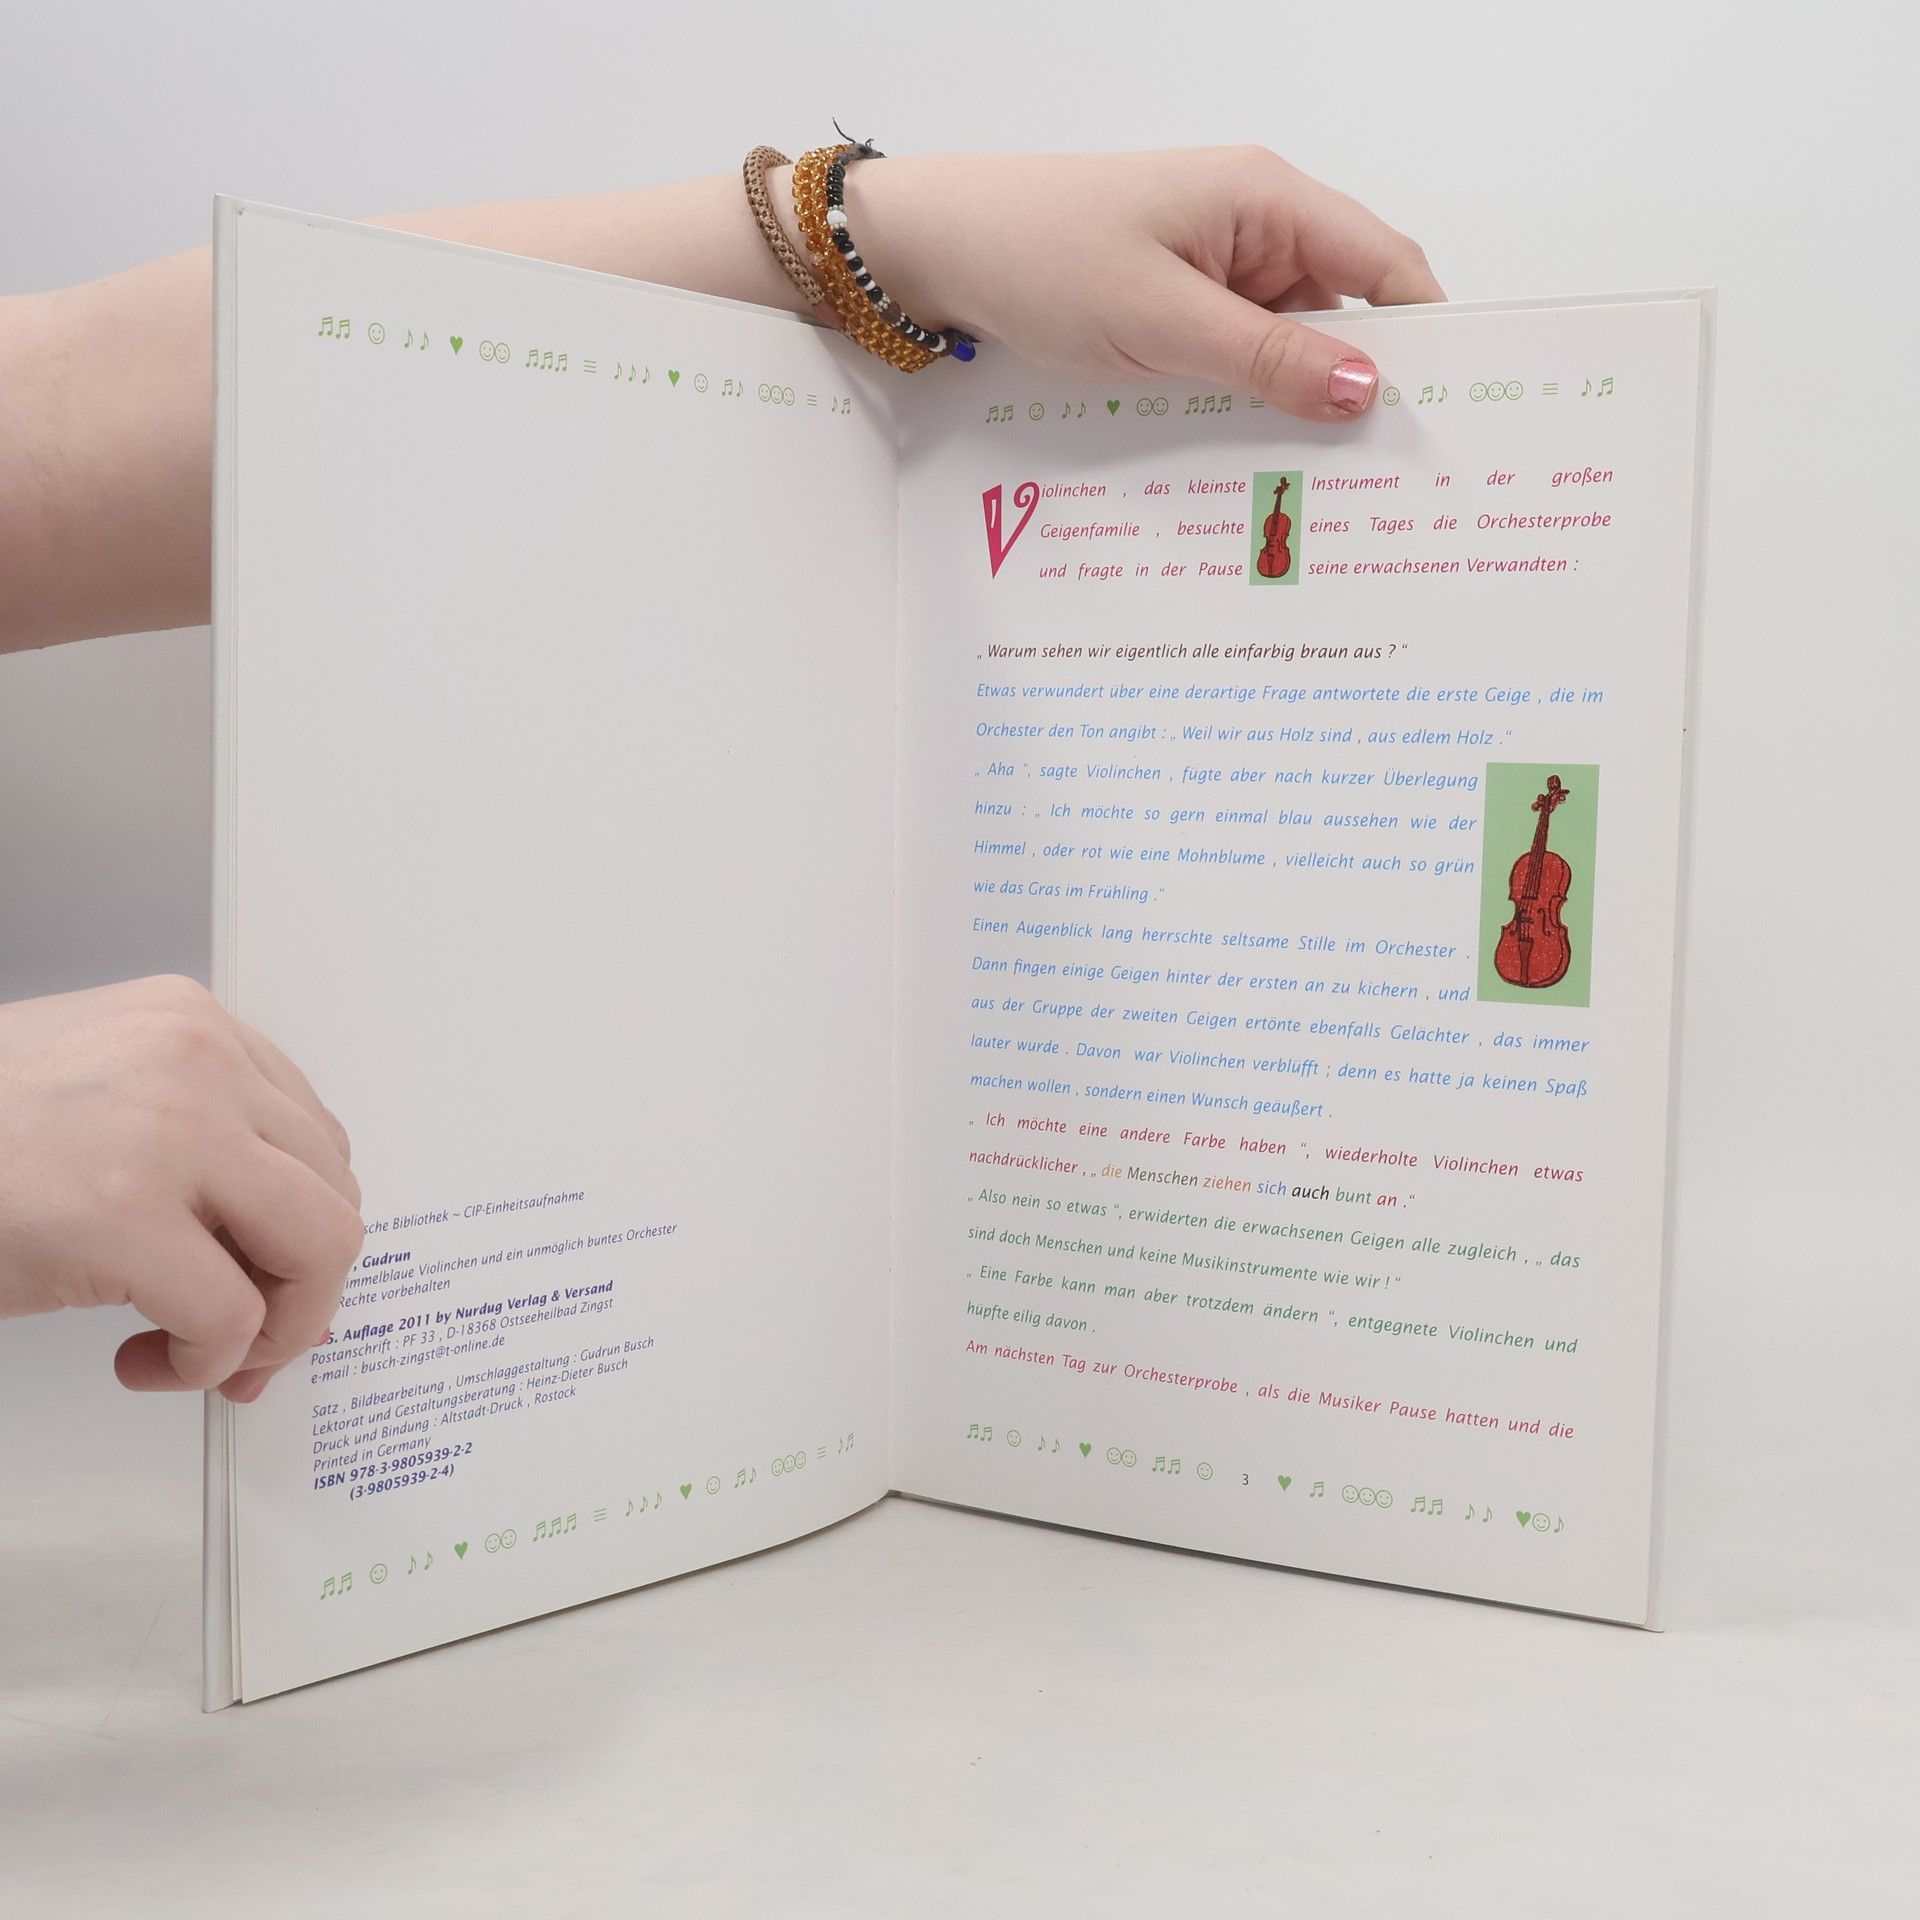 sche Bibliothek ~ CIP-Einheitsaufnahme
, Gudrun
immelblaue Violinchen und ein unmöglich buntes Orchester
Rechte vorbehalten
5. Auflage 2011 by Nurdug Verlag & Versand
Postanschrift : PF 33 , D-18368 Ostseeheilbad Zingst
e-mail : busch-zingst@t-online.de
Satz , Bildbearbeitung , Umschlaggestaltung : Gudrun Busch
Lektorat und Gestaltungsberatung : Heinz-Dieter Busch
Druck und Bindung : Altstadt-Druck , Rostock
Printed in Germany
ISBN 978-3-9805939-2-2
(3-9805939-2-4)
Violinchen , das kleinste Instrument in der großen
Geigenfamilie , besuchte eines Tages die Orchesterprobe
und fragte in der Pause seine erwachsenen Verwandten :
„ Warum sehen wir eigentlich alle einfarbig braun aus ? “
Etwas verwundert über eine derartige Frage antwortete die erste Geige , die im
Orchester den Ton angibt : „ Weil wir aus Holz sind , aus edlem Holz .“
„ Aha “, sagte Violinchen , fügte aber nach kurzer Überlegung
hinzu : „ Ich möchte so gern einmal blau aussehen wie der
Himmel , oder rot wie eine Mohnblume , vielleicht auch so grün
wie das Gras im Frühling .“
Einen Augenblick lang herrschte seltsame Stille im Orchester .
Dann fingen einige Geigen hinter der ersten an zu kichern , und
aus der Gruppe der zweiten Geigen ertönte ebenfalls Gelächter , das immer
lauter wurde . Davon war Violinchen verblüfft ; denn es hatte ja keinen Spaß
machen wollen , sondern einen Wunsch geäußert .
„ Ich möchte eine andere Farbe haben “, wiederholte Violinchen etwas
nachdrücklicher , „ die Menschen ziehen sich auch bunt an .“
„ Also nein so etwas “, erwiderten die erwachsenen Geigen alle zugleich , „ das
sind doch Menschen und keine Musikinstrumente wie wir ! “
„ Eine Farbe kann man aber trotzdem ändern “, entgegnete Violinchen und
hüpfte eilig davon .
Am nächsten Tag zur Orchesterprobe , als die Musiker Pause hatten und die
3